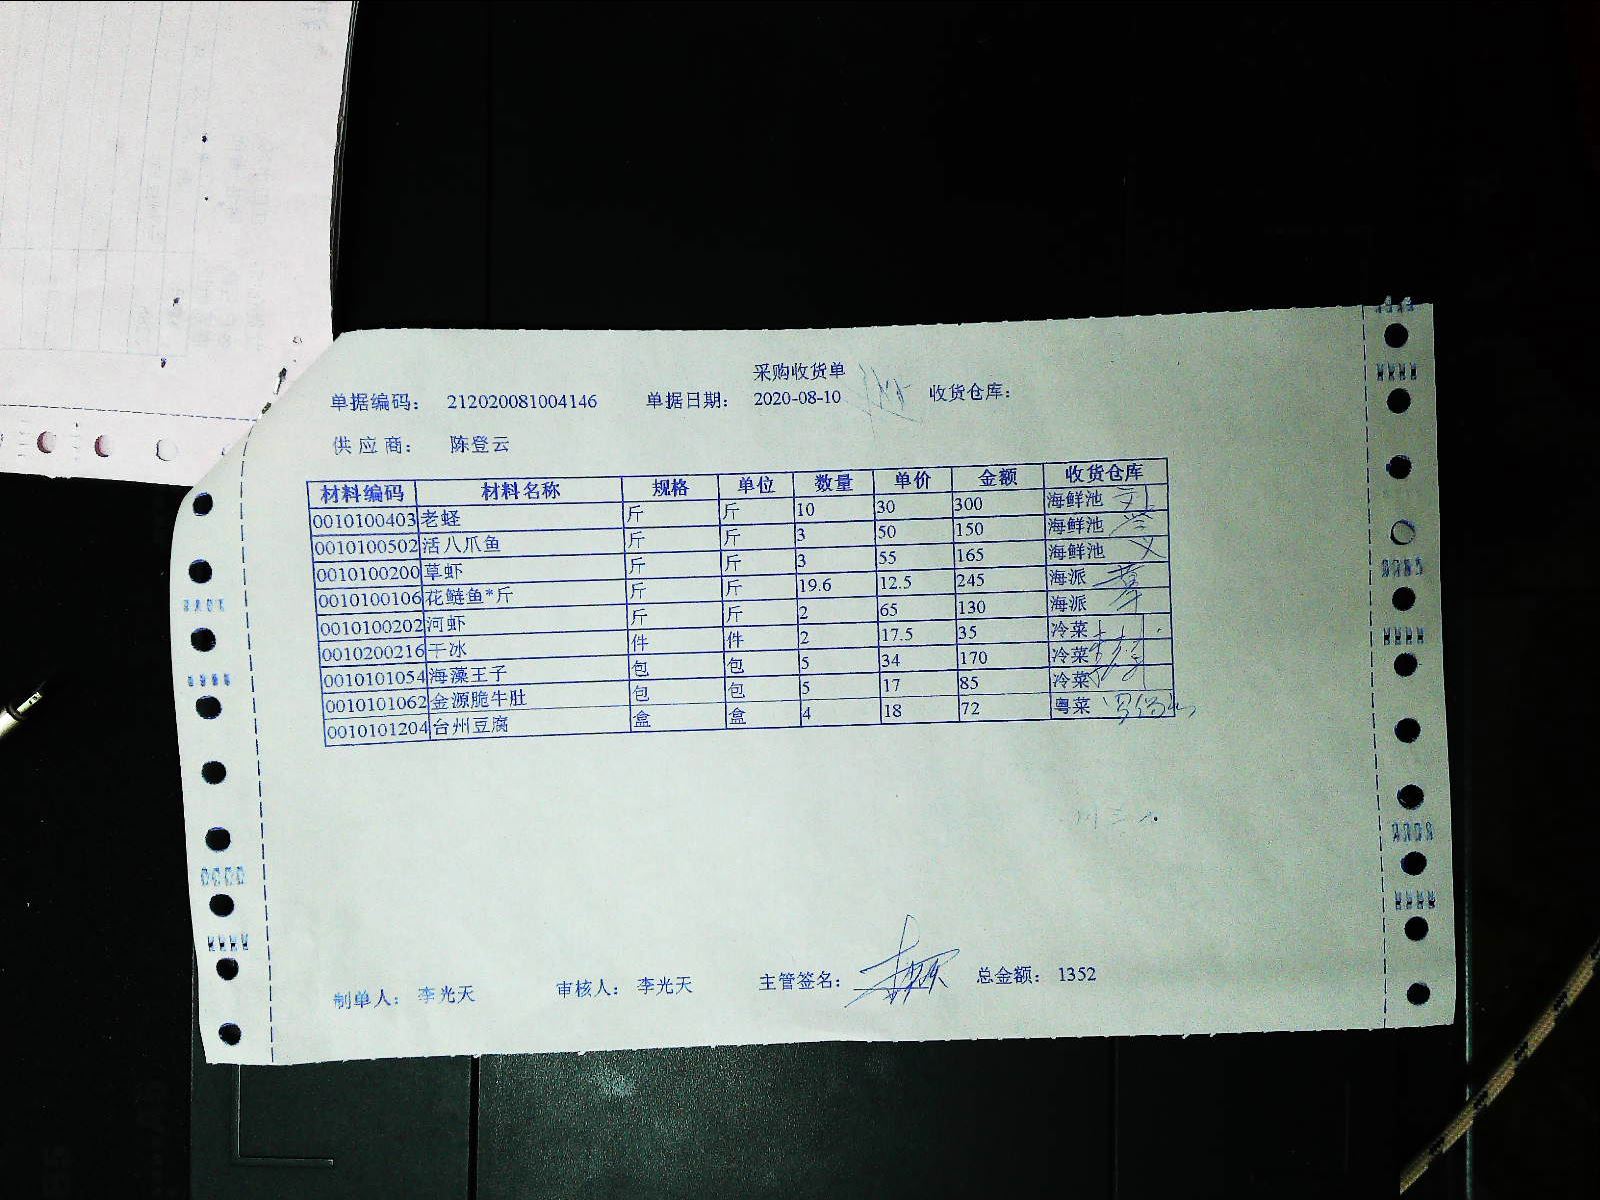 采购收货单
单据编码： 212020081004146 单据日期： 2020-08-10 收货仓库：
供应商： 陈登云
材料编码 材料名称 规格 单位 数量 单价 金额 收货仓库
0010100403 老蛏 斤 斤 10 30 300 海鲜池
0010100502 活八爪鱼 斤 斤 3 50 150 海鲜池
0010100200 草虾 斤 斤 3 55 165 海鲜池
0010100106 花鲢鱼*斤 斤 斤 19.6 12.5 245 海派
0010100202 河虾 斤 斤 2 65 130 海派
0010200216 干冰 件 件 2 17.5 35 冷菜
0010101054 海藻王子 包 包 5 34 170 冷菜
0010101062 金源脆牛肚 包 包 5 17 85 冷菜
0010101204 台州豆腐 盒 盒 4 18 72 粤菜
制单人： 李光天 审核人： 李光天 主管签名： 总金额： 1352